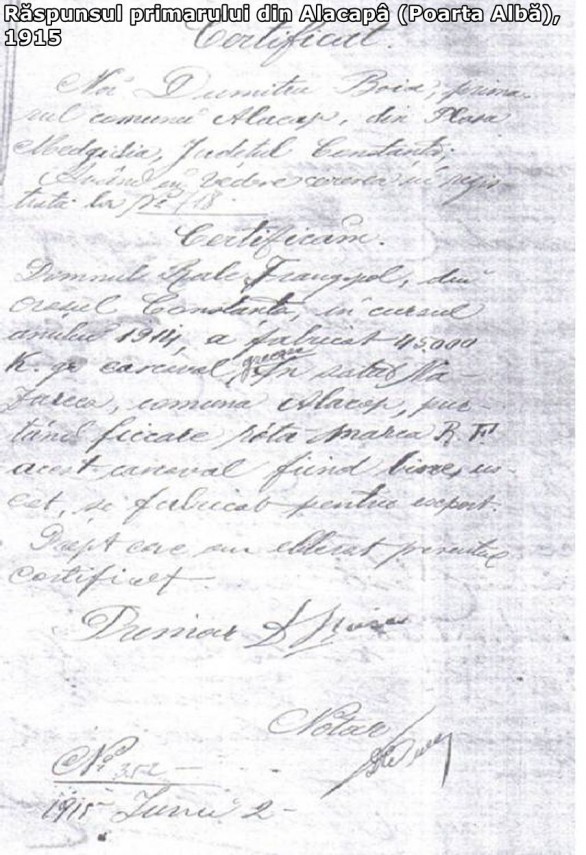 Răspunsul primarului din Alacapâ (Poarta Albă),
1915
Certificat.
Noi Dumitru Boia, prima-
rul comunei Alacap, din Plasa
Medgidia, Judetul Constanța;
Având în vedere cererea in regis-
trata la No 18.
Certificăm.
Domnule Frangopol, din
orașul Constanta, in cursul
anului 1914, a fabricat 45000
K. g. cascaval, În satul Na-
zarcea, comuna Alacap, pur-
tând fiecare róta marca R. F
acest cascaval fiind bine us-
cat, si fabricat pentru export.
Drept care am eliberat presentul
certificat.
Primar
Notar
No 352
1915 Iunie 2 -